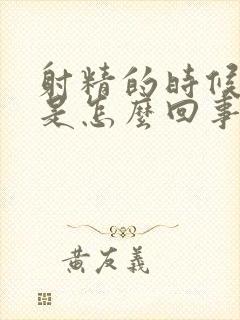 射精的时候
是怎麼回事
黄友義